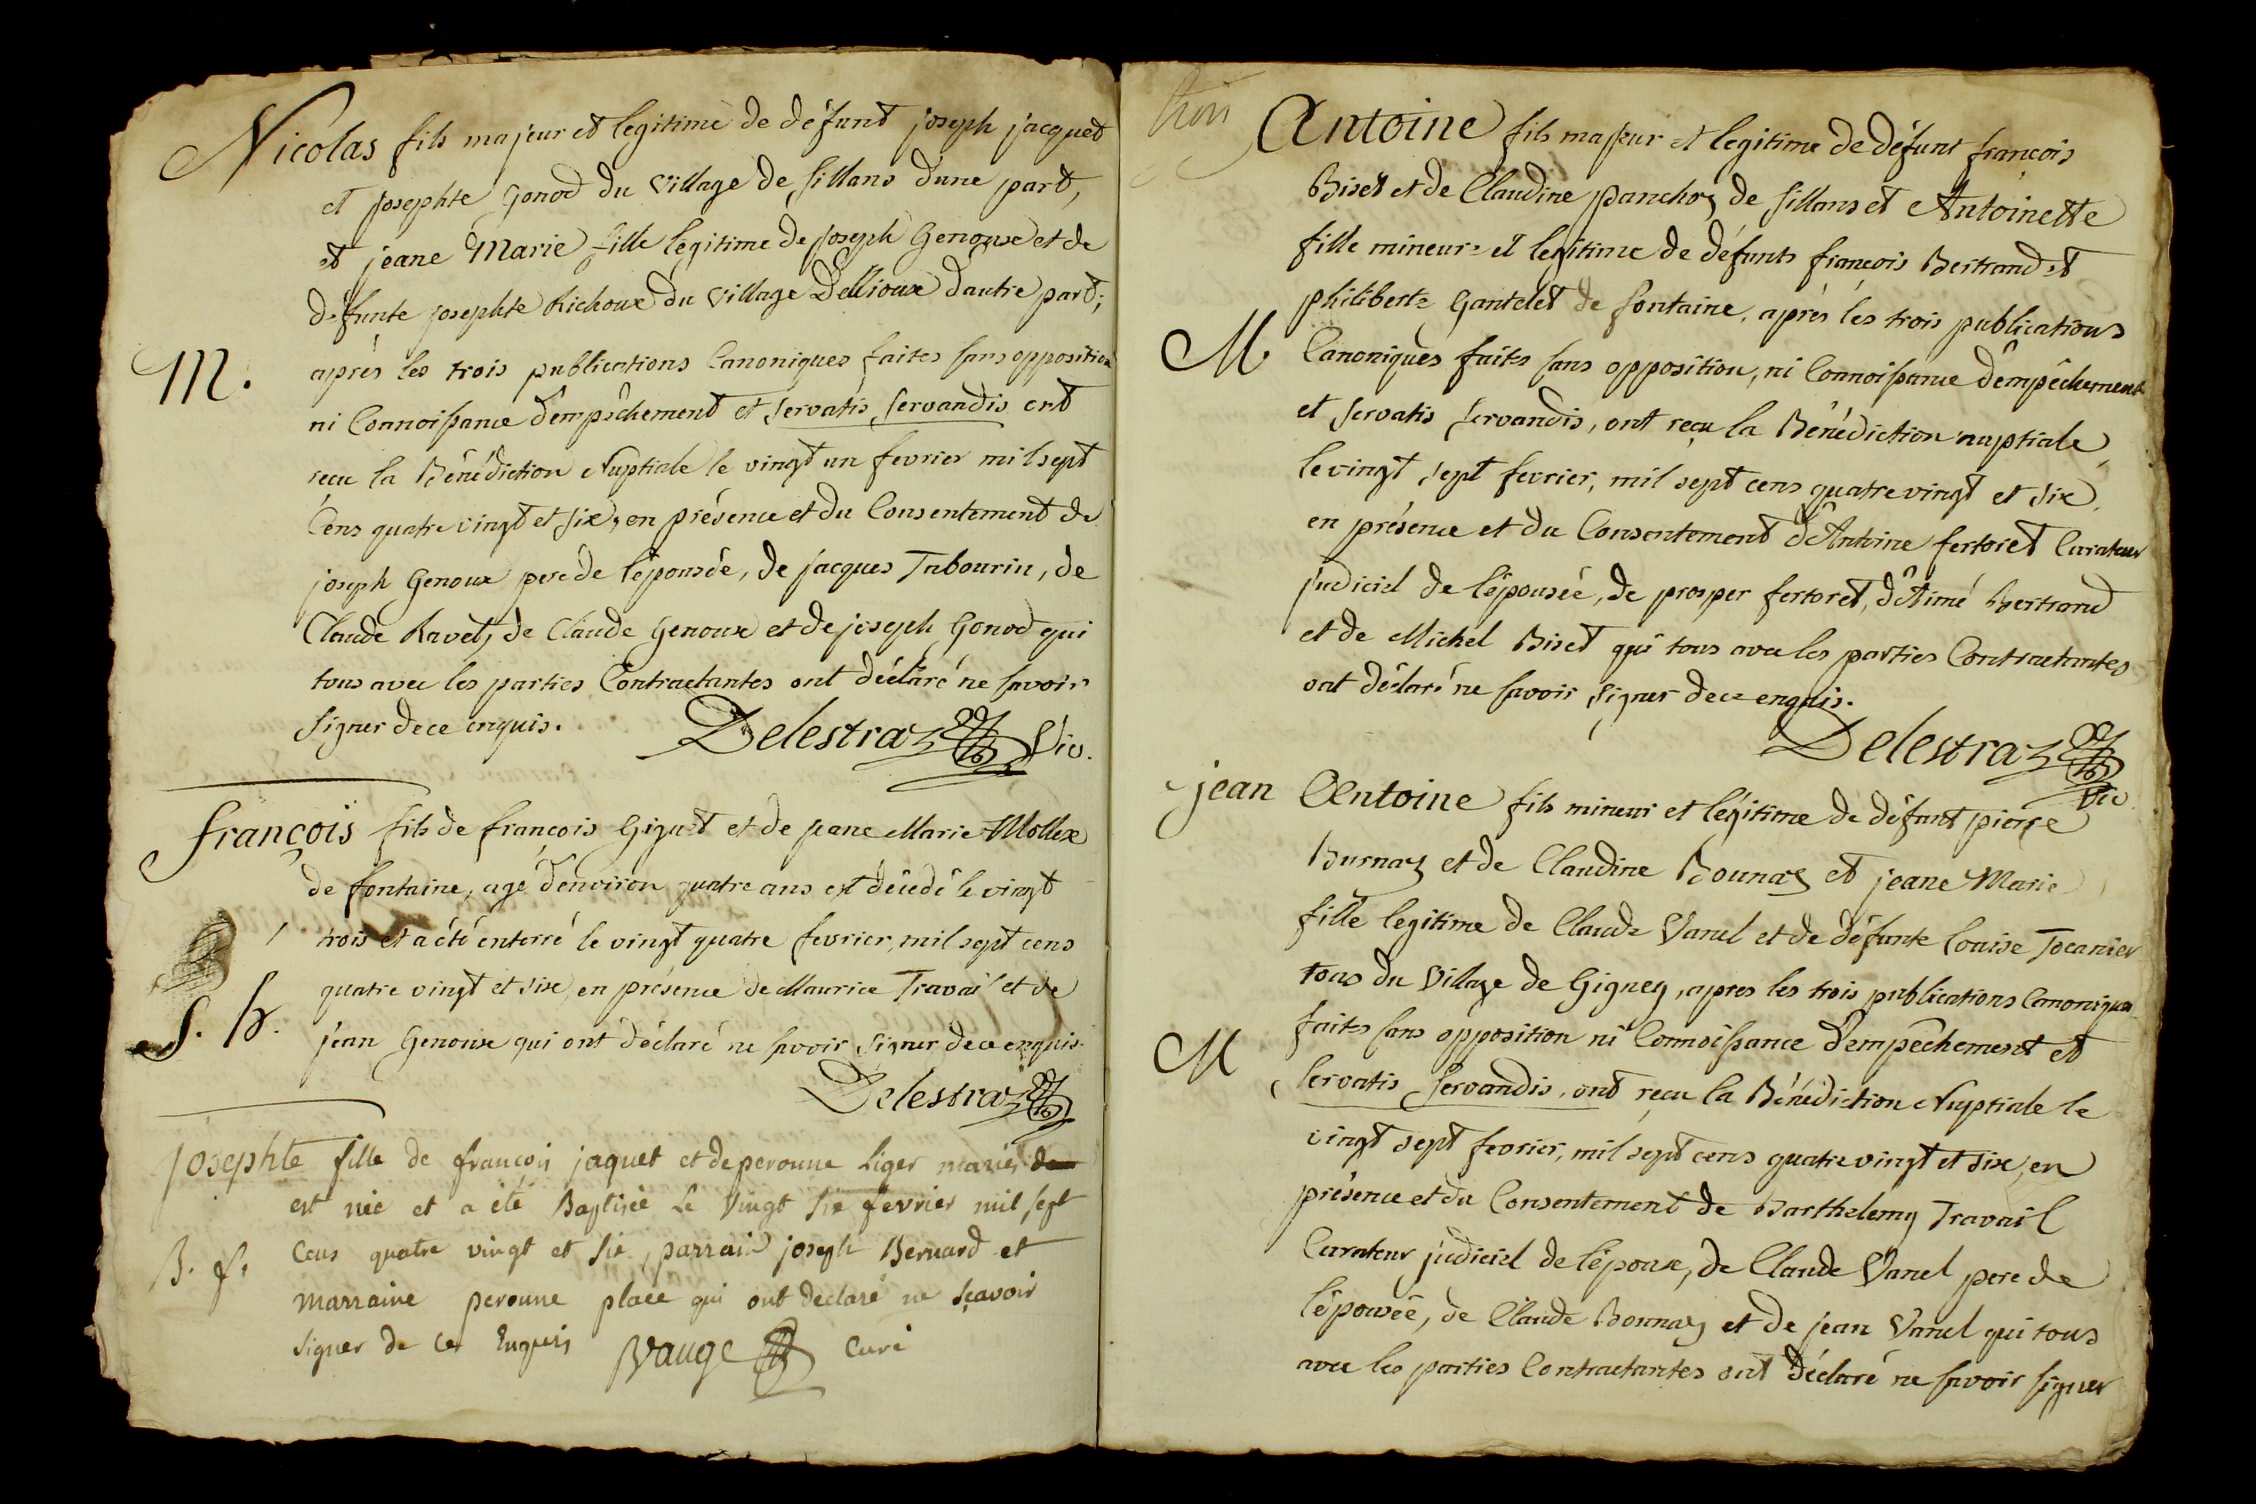 Nicolas fils majeur et legitime de défunt joseph jacquet
et josephte Gonod du village de Sillans d'une part,
et jeane Marie fille legitime de joseph Genoux et de
défunte josephte Richoux du village Dellioux d'autre part;
M.
après les trois publications Canoniques faites sans opposition
ni Connoissance d'empêchement et servatis servandis ont
reçu la Bénédiction Nuptiale le vingt un fevrier mil sept
Cens quatre vingt et six, en présence et du Consentement de
joseph Genoux pere de l'épousée, de jacques Tabourin, de
Claude Ravet, de Claude Genoux et de joseph Gonod qui
tous avec les parties Contractantes ont déclaré ne savoir
signer de ce enquis.
Delestraz Vic.
françois fils de françois Giguet et de jeane Marie Mollex
de fontaine, agé d'environ quatre ans est décédé le vingt
trois et a été enterré le vingt quatre fevrier mil sept cens
quatre vingt et six, en présence de Maurice Travail et de
S. h.
jean Genoux qui ont déclaré ne savoir signer de ce enquis.
Delestraz
josephte fille de françois jaquet et de peronne Liger mariés de
est née et a été Baptisée Le vingt six fevrier mil sept
B. f.
Cens quatre vingt et six, parrain joseph Bernard et
marraine peronne place qui ont déclaré ne sçavoir
signer de ce Enquis Vauge Curé
trois
Antoine fils majeur et legitime de défunt françois
Biset et de Claudine panchoz de Sillans et Antoinette
fille mineure et legitime de défunts françois Bertrand et
philiberte Gantelet de fontaine, après les trois publications
M.
Canoniques faites sans opposition, ni Connoissance d'empêchement
et servatis servandis, ont reçu la Bénédiction nuptiale,
le vingt sept fevrier, mil sept cens quatre vingt et six,
en présence et du Consentement d'Antoine fertoret Curateur
judiciel de l'épousée, de prosper fertoret, d'Aimé Bertrand
et de Michel Biset qui tous avec les parties Contractantes
ont déclaré ne savoir signer de ce enquis.
Delestraz
Vic
jean Antoine fils mineur et légitime de défunt pierre
Burnaz et de Claudine Bounaz et jeane Marie
fille legitime de Claude Vanel et de défunte Louise Tocanier
tous du village de Gigney, après les trois publications Canoniques
M
faites sans opposition ni Connoissance d'empêchement et
servatis servandis, ont reçu la Bénédiction Nuptiale le
vingt sept fevrier, mil sept cens quatre vingt et six, en
présence et du Consentement de Barthelemy Travail
Curateur judiciel de l'époux, de Claude Vanel pere de
l'épousée, de Claude Bonnaz et de jean Vanel qui tous
avec les parties Contractantes ont déclaré ne savoir signer